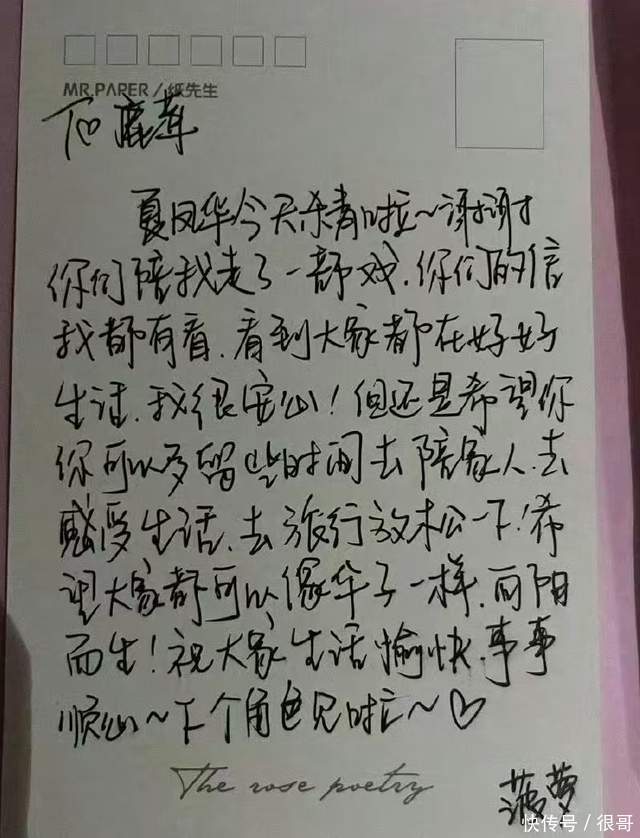 MR.PAPER/纸先生
To 鹿茸
夏凤华今天杀青啦~谢谢
你们陪我走了一部戏.你们的信
我都有看.看到大家都在好好
生活.我很安心!但还是希望你
你可以多留些时间去陪家人.去
感受生活.去旅行放松一下!希
望大家都可以像华子一样.向阳
而生!祝大家生活愉快.事事
顺心~下个角色见啦~♡
The rose poetry
菠萝
快传号/很哥